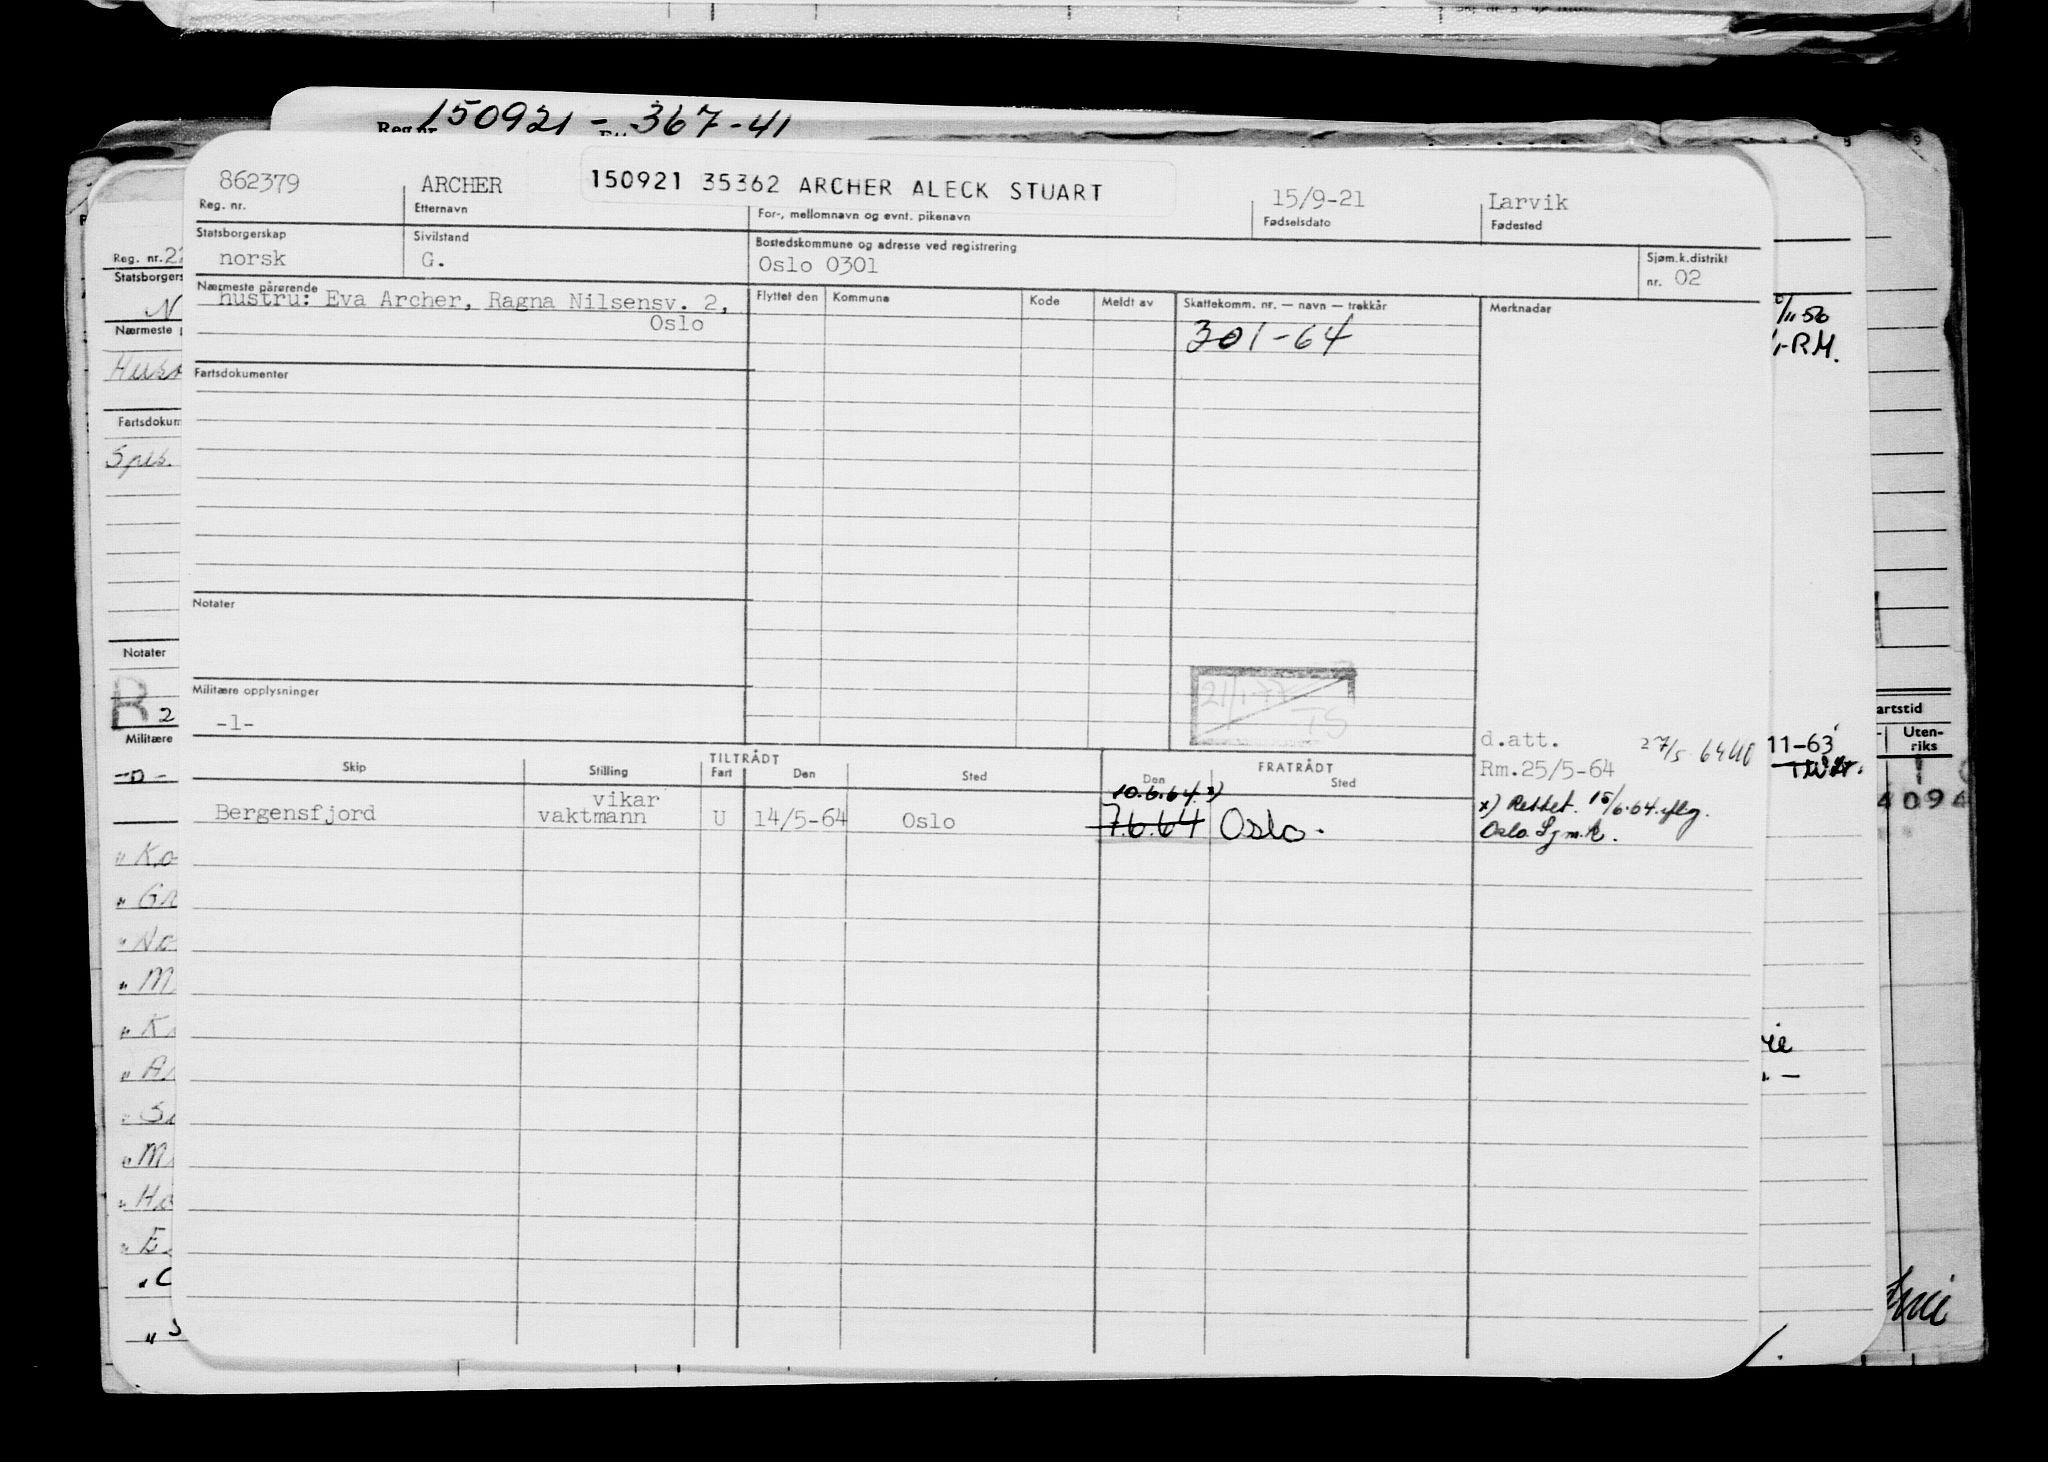 Reg.nr. 150921 - 367-41
862379 ARCHER 150921 35362 ARCHER ALECK STUART 15/9-21 Larvik
Reg. nr. Etternavn For-, mellomnavn og evnt. pikenavn Fødselsdato Fødested
Statsborgerskap Sivilstand Bostedskommune og adresse ved registrering Sjøm.k.distrikt
norsk G. Oslo 0301 nr. 02
Nærmeste pårørende Flyttet den Kommune Kode Meldt av Skattekomm. nr. — navn — trekkår Merknader
hustru: Eva Archer, Ragna Nilsensv. 2,
Oslo
301-64
Fartsdokumenter
Notater
Militære opplysninger
-1-
21/1-77
TS
d.att. 27/5-64
Rm.25/5-64
TILTRÅDT FRATRÅDT
Skip Stilling Fart Den Sted Den Sted
10.6.64 x)
Bergensfjord vikar vaktmann U 14/5-64 Oslo 7.6.64 Oslo.
x) Rettet. 15/6.64. iflg.
Oslo Sjm.k.
Reg. nr. 22
Statsborgers
N
Nærmeste
Hust
Fartsdokum
Spes.
Notater
R 2
Militære
-D-
" Ko
" Gr
" No
" M
" K
" A
" M
" Ho
" E
" C
" S
/11 50
-RM.
11-63
artstid
Uten-
riks
4094